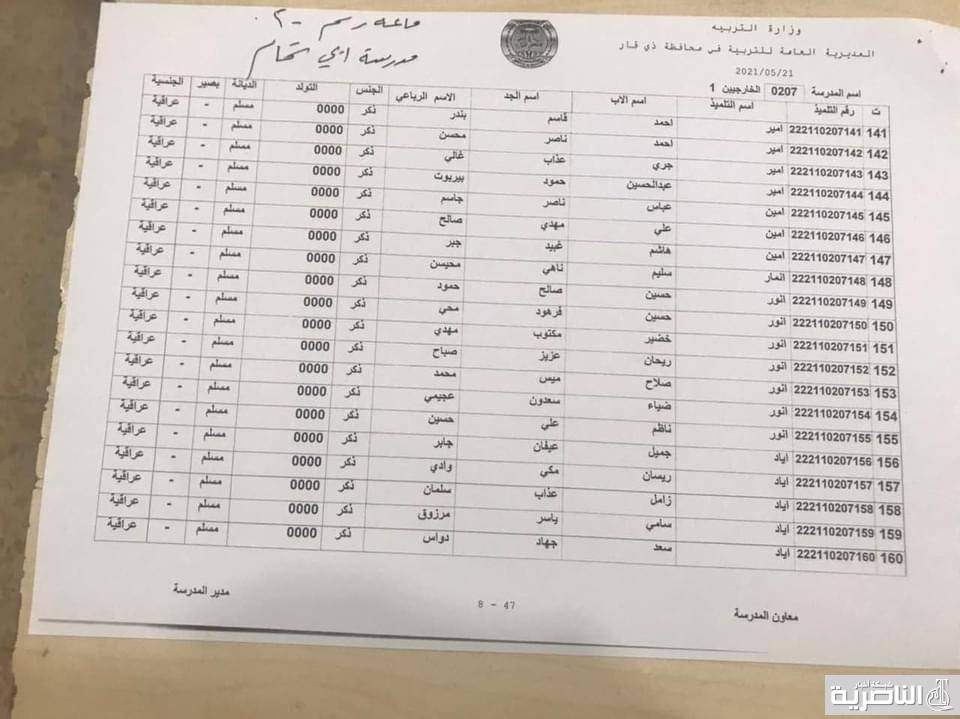 وزارة التربيه
المديرية العامة للتربية في محافظة ذي قار
2021/05/21
قاعه رسم - ٢
مدرسة ابي تمام
اسم المدرسة 0207 الخارجيين 1
ت رقم التلميذ اسم التلميذ اسم الاب اسم الجد الاسم الرباعي الجنس التولد الديانة بصير الجنسية
141 222110207141 امير احمد قاسم بندر ذكر 0000 مسلم - عراقية
142 222110207142 امير احمد ناصر محسن ذكر 0000 مسلم - عراقية
143 222110207143 امير جري عذاب غالي ذكر 0000 مسلم - عراقية
144 222110207144 امير عبدالحسين حمود بيريوت ذكر 0000 مسلم - عراقية
145 222110207145 امين عباس ناصر جاسم ذكر 0000 مسلم - عراقية
146 222110207146 امين علي مهدي صالح ذكر 0000 مسلم - عراقية
147 222110207147 امين هاشم عبيد جبر ذكر 0000 مسلم - عراقية
148 222110207148 انمار سليم ناهي محيسن ذكر 0000 مسلم - عراقية
149 222110207149 انور حسين صالح حمود ذكر 0000 مسلم - عراقية
150 222110207150 انور حسين فرهود محي ذكر 0000 مسلم - عراقية
151 222110207151 انور خضير مكتوب مهدي ذكر 0000 مسلم - عراقية
152 222110207152 انور ريحان عزيز صباح ذكر 0000 مسلم - عراقية
153 222110207153 انور صلاح ميس محمد ذكر 0000 مسلم - عراقية
154 222110207154 انور ضياء سعدون عجيمي ذكر 0000 مسلم - عراقية
155 222110207155 انور ناظم علي حسين ذكر 0000 مسلم - عراقية
156 222110207156 اياد جميل عيفان جابر ذكر 0000 مسلم - عراقية
157 222110207157 اياد ريسان مكي وادي ذكر 0000 مسلم - عراقية
158 222110207158 اياد زامل عذاب سلمان ذكر 0000 مسلم - عراقية
159 222110207159 اياد سامي ياسر مرزوق ذكر 0000 مسلم - عراقية
160 222110207160 اياد سعد جهاد دواس ذكر 0000 مسلم - عراقية
معاون المدرسة
8 - 47
مدير المدرسة
شبكة أخبار
الناصرية